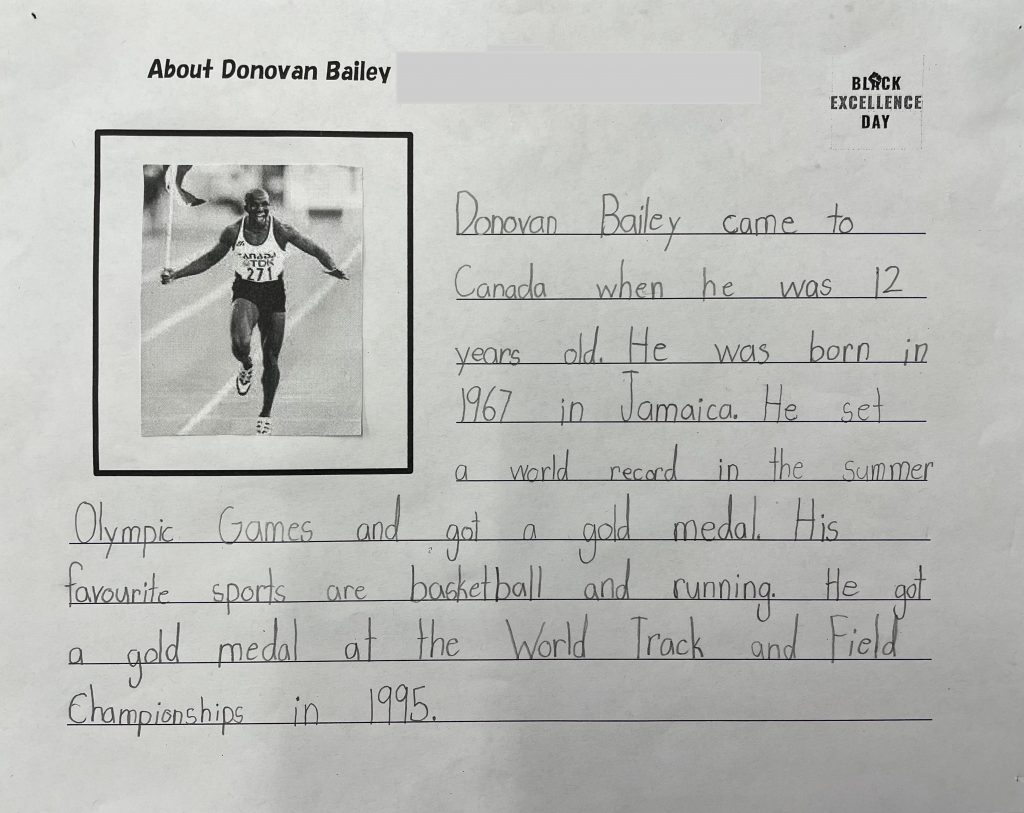 About Donovan Bailey
BLACK
EXCELLENCE
DAY
CANADA
TDK
271
Donovan Bailey came to
Canada when he was 12
years old. He was born in
1967 in Jamaica. He set
a world record in the summer
Olympic Games and got a gold medal. His
favourite sports are basketball and running. He got
a gold medal at the World Track and Field
Championships in 1995.